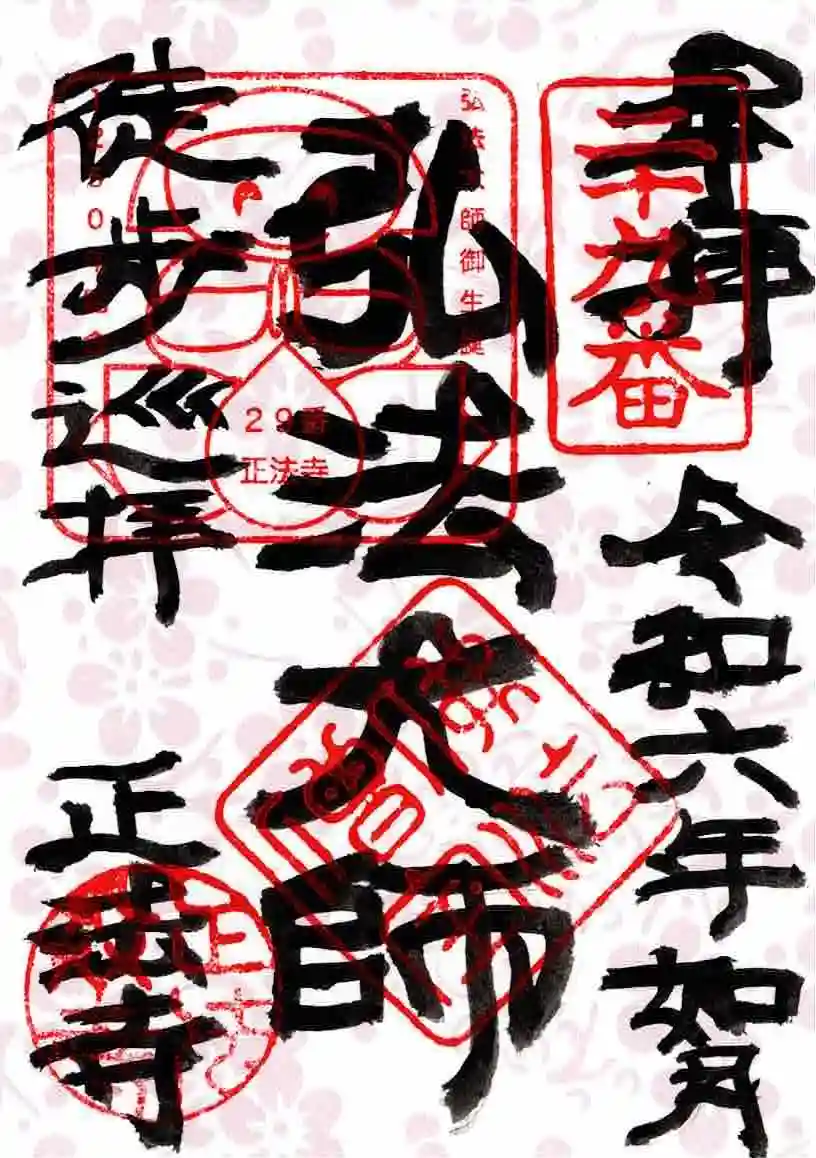 奉拝
令和六年賀
二十九番
弘法大師
弘法大師御生誕
29番
正法寺
徒歩巡拝
正法寺